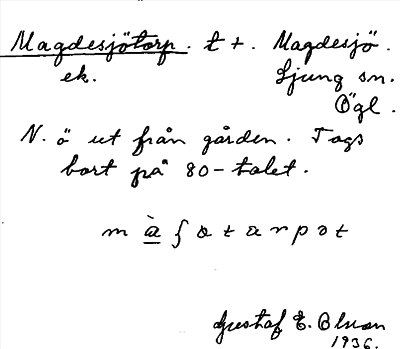 Magdesjötorp. t +. Magdesjö.
ek. Ljung sn.
Ögl.
N. ö ut från gården. Togs
bort på 80-talet.
Gustaf E. Olsson
1936.